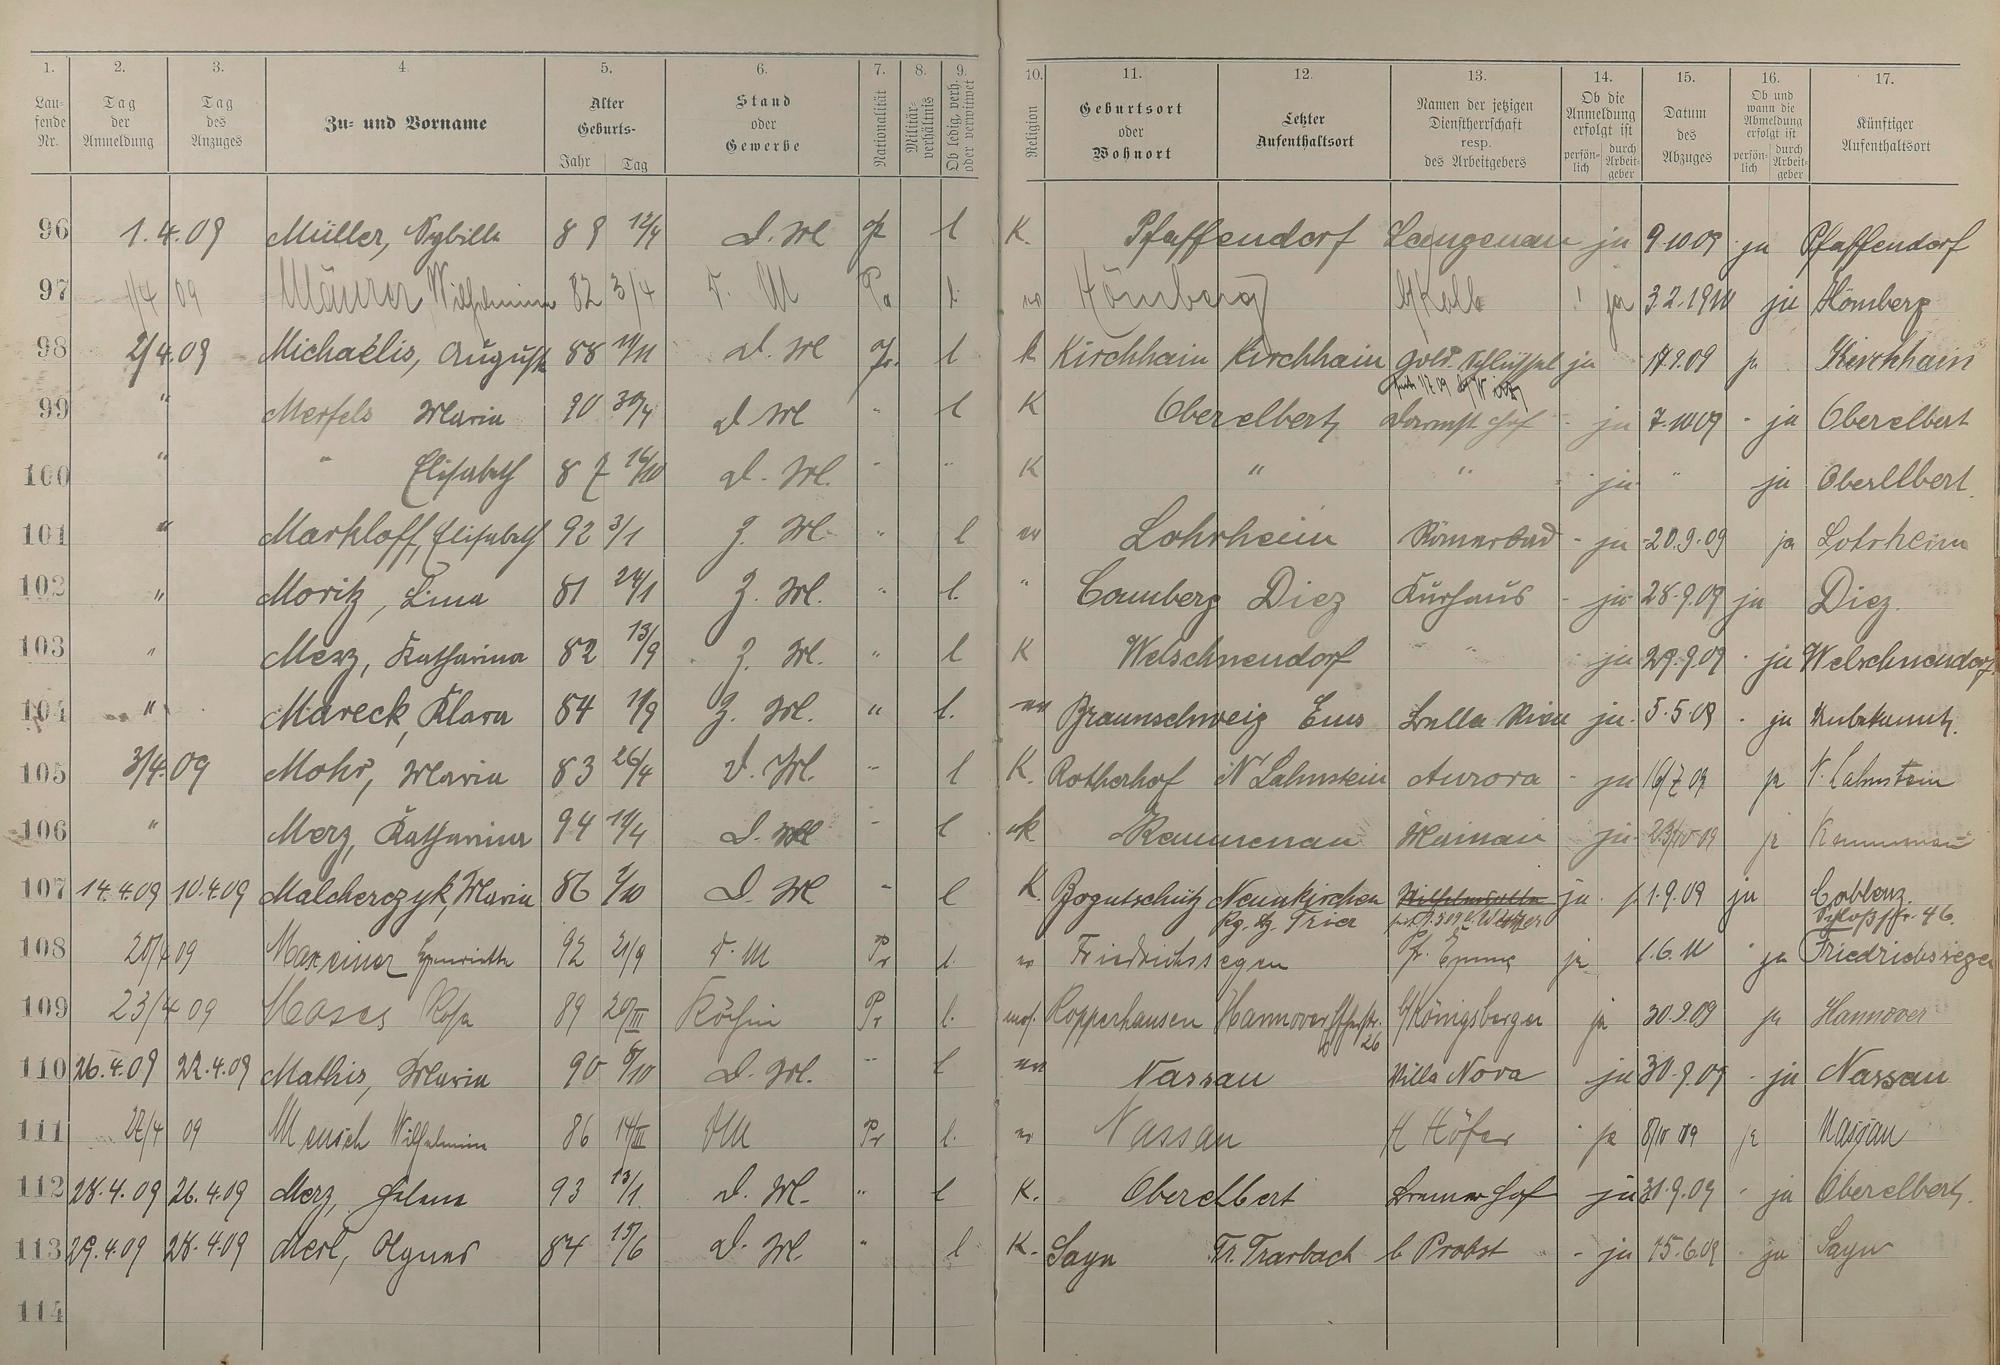 1. 2. 3. 4. 5. 6. 7. 8. 9. 10. 11. 12. 13. 14. 15. 16. 17.
Lau-fende Nr. | Tag der Anmeldung | Tag des Anzuges | Zu- und Vorname | Alter Geburts- Jahr Tag | Stand oder Gewerbe | Nationalität | Militär-verhältnis | Ob ledig, verh. oder verwitwet | Religion | Geburtsort oder Wohnort | Letzter Aufenthaltsort | Namen der jetzigen Dienstherrschaft resp. des Arbeitgebers | Ob die Anmeldung erfolgt ist persön-lich durch Arbeit-geber | Datum des Abzuges | Ob und wann die Abmeldung erfolgt ist persön-lich durch Arbeit-geber | Künftiger Aufenthaltsort
96 1.4.09 Müller, Sybilla 89 12/4 D. M l K. Pfaffendorf Langenau ja 9.10.09 ja Pfaffendorf
97 1/4 09 Mäurer Wilhelmine 82 3/4 D. M l. Hömberg ja 3.2.1910 ja Hömberg
98 2/4.09 Michaelis, August 88 11/11 D. M Pr. l k Kirchhain Kirchhain Gold. Schlüssel ja 17.9.09 ja Kirchhain
99 " Merfels Maria 90 30/4 D M " l K Oberelbert Darmst Hof ja 7.10.09 - ja Oberelbert
100 " " Elisabeth 87 16/10 D. M. " " K " " ja " ja Oberelbert.
101 " Markloff, Elisabeth 92 3/1 Z. M. " l Lohrheim Römerbad - ja 20.9.09 ja Lohrheim
102 " Moritz, Lina 81 24/1 Z. M. " l. " Camberg Diez Kurhaus - ja 28.9.09 ja Diez.
103 " Merz, Katharina 82 13/9 Z. M. " l K Welschneudorf " ja 29.9.09 - ja Welschneudorf
104 " Mareck, Klara 84 11/9 Z. M. " l. Braunschweig Ems ja. 5.5.09 - ja Unbekannt.
105 3/4.09 Mohr, Maria 83 26/4 D. M. " l K. Rotherhof N Lahnstein Aurora - ja 16/7 09 ja N. Lahnstein
106 " Merz, Katharina 94 11/4 D. M - l k Kemmenau Mainau ja 09 ja Kemmenau
107 14.4.09 10.4.09 Malcherczyk, Maria 86 /10 D. M - l K. Bogutschütz Neunkirchen ja 1.9.09 ja Coblenz.
Rg. Bz. Trier Schloßstr. 46.
108 20/4 09 Maxeiner Henriette 92 21/9 D. M Pr l. Friedrichssegen ja 1.6.11 " ja Friedrichssegen
109 23/4 09 Moses Rosa 89 20/III Köchin Pr l. mos. Kopperhausen Hannover 26 H/Königsberger ja 30.9.09 ja Hannover
110 26.4.09 22.4.09 Mathis, Maria 90 8/10 D. M. " l Nassau Villa Nova ja 30.9.09 - ja Nassau
111 27/4 09 Meusch Wilhelmine 86 14/III DM Pr l. Nassau H Höfer " ja 8/10 09 ja Nassau
112 28.4.09 26.4.09 Merz, Helena 93 13/1. D. M. " l K. Oberelbert Bremer Hof ja 30.9.09 - ja Oberelbert.
113 29.4.09 28.4.09 Merl, Agnes 84 15/6 D. M. " l K. Sayn Tr. Trarbach b Probst - ja 15.6.09 ja Sayn
114